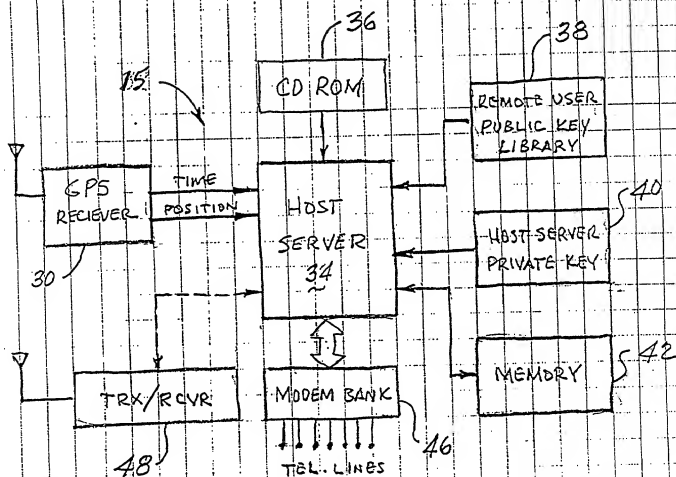 36
38
15
CD ROM
REMOTE USER
PUBLIC KEY
LIBRARY
GPS
RECIEVER
TIME
POSITION
30
HOST
SERVER
34
40
HOST SERVER
PRIVATE KEY
MEMORY
42
TRX/RCVR
48
MODEM BANK
46
TEL. LINES